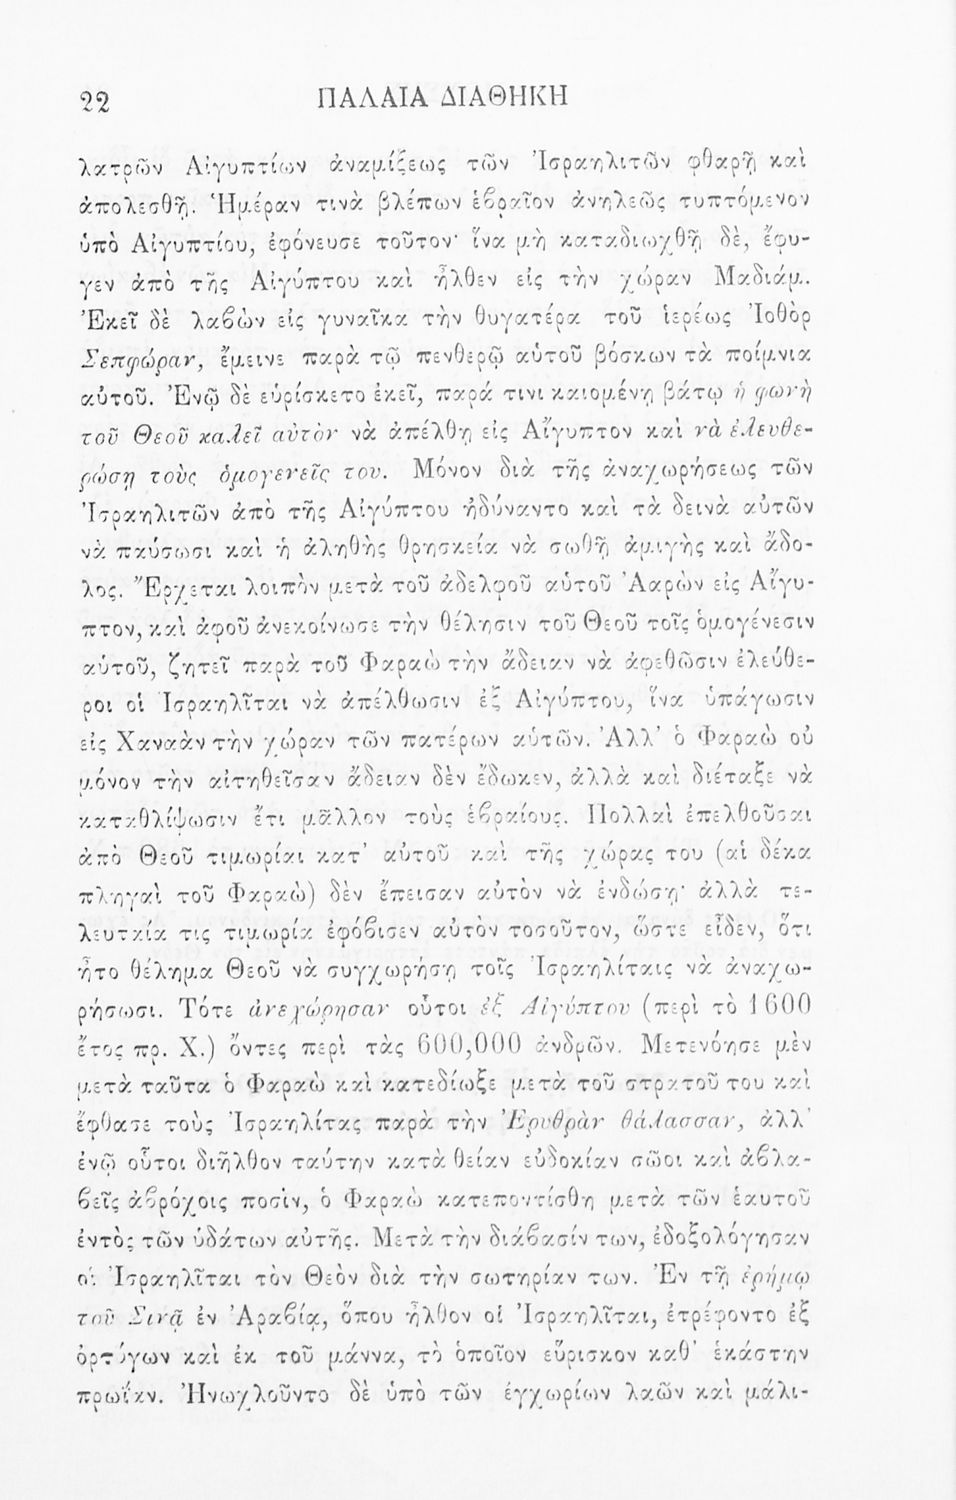 22 ΠΑΛΑΙΑ ΔΙΑΘΗΚΗ
λατρῶν Αἰγυπτίων ἀναμίξεως τῶν Ἰσραηλιτῶν φθαρῇ καὶ
ἀπολεσθῇ. Ἡμέραν τινὰ βλέπων ἑβραῖον ἀνηλεῶς τυπτόμενον
ὑπὸ Αἰγυπτίου, ἐφόνευσε τοῦτον· ἵνα μὴ καταδιωχθῇ δὲ, ἔφυ-
γεν ἀπὸ τῆς Αἰγύπτου καὶ ἦλθεν εἰς τὴν χώραν Μαδιάμ.
Ἐκεῖ δὲ λαβὼν εἰς γυναῖκα τὴν θυγατέρα τοῦ ἱερέως Ἰοθὸρ
Σεπφώραν, ἔμεινε παρὰ τῷ πενθερῷ αὑτοῦ βόσκων τὰ ποίμνια
αὐτοῦ. Ἐνῷ δὲ εὑρίσκετο ἐκεῖ, παρά τινι καιομένῃ βάτῳ ἡ φωνὴ
τοῦ Θεοῦ καλεῖ αὐτὸν νὰ ἀπέλθῃ εἰς Αἴγυπτον καὶ νὰ ἐλευθε-
ρώσῃ τοὺς ὁμογενεῖς του. Μόνον διὰ τῆς ἀναχωρήσεως τῶν
Ἰσραηλιτῶν ἀπὸ τῆς Αἰγύπτου ἠδύναντο καὶ τὰ δεινὰ αὐτῶν
νὰ παύσωσι καὶ ἡ ἀληθὴς θρησκεία νὰ σωθῇ ἀμιγὴς καὶ ἄδο-
λος. Ἔρχεται λοιπὸν μετὰ τοῦ ἀδελφοῦ αὑτοῦ Ἀαρὼν εἰς Αἴγυ-
πτον, καὶ ἀφοῦ ἀνεκοίνωσε τὴν θέλησιν τοῦ Θεοῦ τοῖς ὁμογένεσιν
αὑτοῦ, ζητεῖ παρὰ τοῦ Φαραὼ τὴν ἄδειαν νὰ ἀφεθῶσιν ἐλεύθε-
ροι οἱ Ἰσραηλῖται νὰ ἀπέλθωσιν ἐξ Αἰγύπτου, ἵνα ὑπάγωσιν
εἰς Χαναὰν τὴν χώραν τῶν πατέρων αὑτῶν. Ἀλλ' ὁ Φαραὼ οὐ
μόνον τὴν αἰτηθεῖσαν ἄδειαν δὲν ἔδωκεν, ἀλλὰ καὶ διέταξε νὰ
καταθλίψωσιν ἔτι μᾶλλον τοὺς ἑβραίους. Πολλαὶ ἐπελθοῦσαι
ἀπὸ Θεοῦ τιμωρίαι κατ' αὐτοῦ καὶ τῆς χώρας του (αἱ δέκα
πληγαὶ τοῦ Φαραὼ) δὲν ἔπεισαν αὐτὸν νὰ ἐνδώσῃ· ἀλλὰ τε-
λευταία τις τιμωρία ἐφόβισεν αὐτὸν τοσοῦτον, ὥστε εἶδεν, ὅτι
ἦτο θέλημα Θεοῦ νὰ συγχωρήσῃ τοῖς Ἰσραηλίταις νὰ ἀναχω-
ρήσωσι. Τότε ἀνεχώρησαν οὗτοι ἐξ Αἰγύπτου (περὶ τὸ 1600
ἔτος πρ. Χ.) ὄντες περὶ τὰς 600,000 ἀνδρῶν. Μετενόησε μὲν
μετὰ ταῦτα ὁ Φαραὼ καὶ κατεδίωξε μετὰ τοῦ στρατοῦ του καὶ
ἔφθασε τοὺς Ἰσραηλίτας παρὰ τὴν Ἐρυθρὰν θάλασσαν, ἀλλ'
ἐνῷ οὗτοι διῆλθον ταύτην κατὰ θείαν εὐδοκίαν σῶοι καὶ ἀβλα-
βεῖς ἀβρόχοις ποσὶν, ὁ Φαραὼ κατεποντίσθη μετὰ τῶν ἑαυτοῦ
ἐντὸς τῶν ὑδάτων αὐτῆς. Μετὰ τὴν διάβασίν των, ἐδοξολόγησαν
οἱ Ἰσραηλῖται τὸν Θεὸν διὰ τὴν σωτηρίαν των. Ἐν τῇ ἐρήμῳ
τοῦ Σινᾶ ἐν Ἀραβίᾳ, ὅπου ἦλθον οἱ Ἰσραηλῖται, ἐτρέφοντο ἐξ
ὀρτύγων καὶ ἐκ τοῦ μάννα, τὸ ὁποῖον εὕρισκον καθ' ἑκάστην
πρωΐαν. Ἠνωχλοῦντο δὲ ὑπὸ τῶν ἐγχωρίων λαῶν καὶ μάλι-